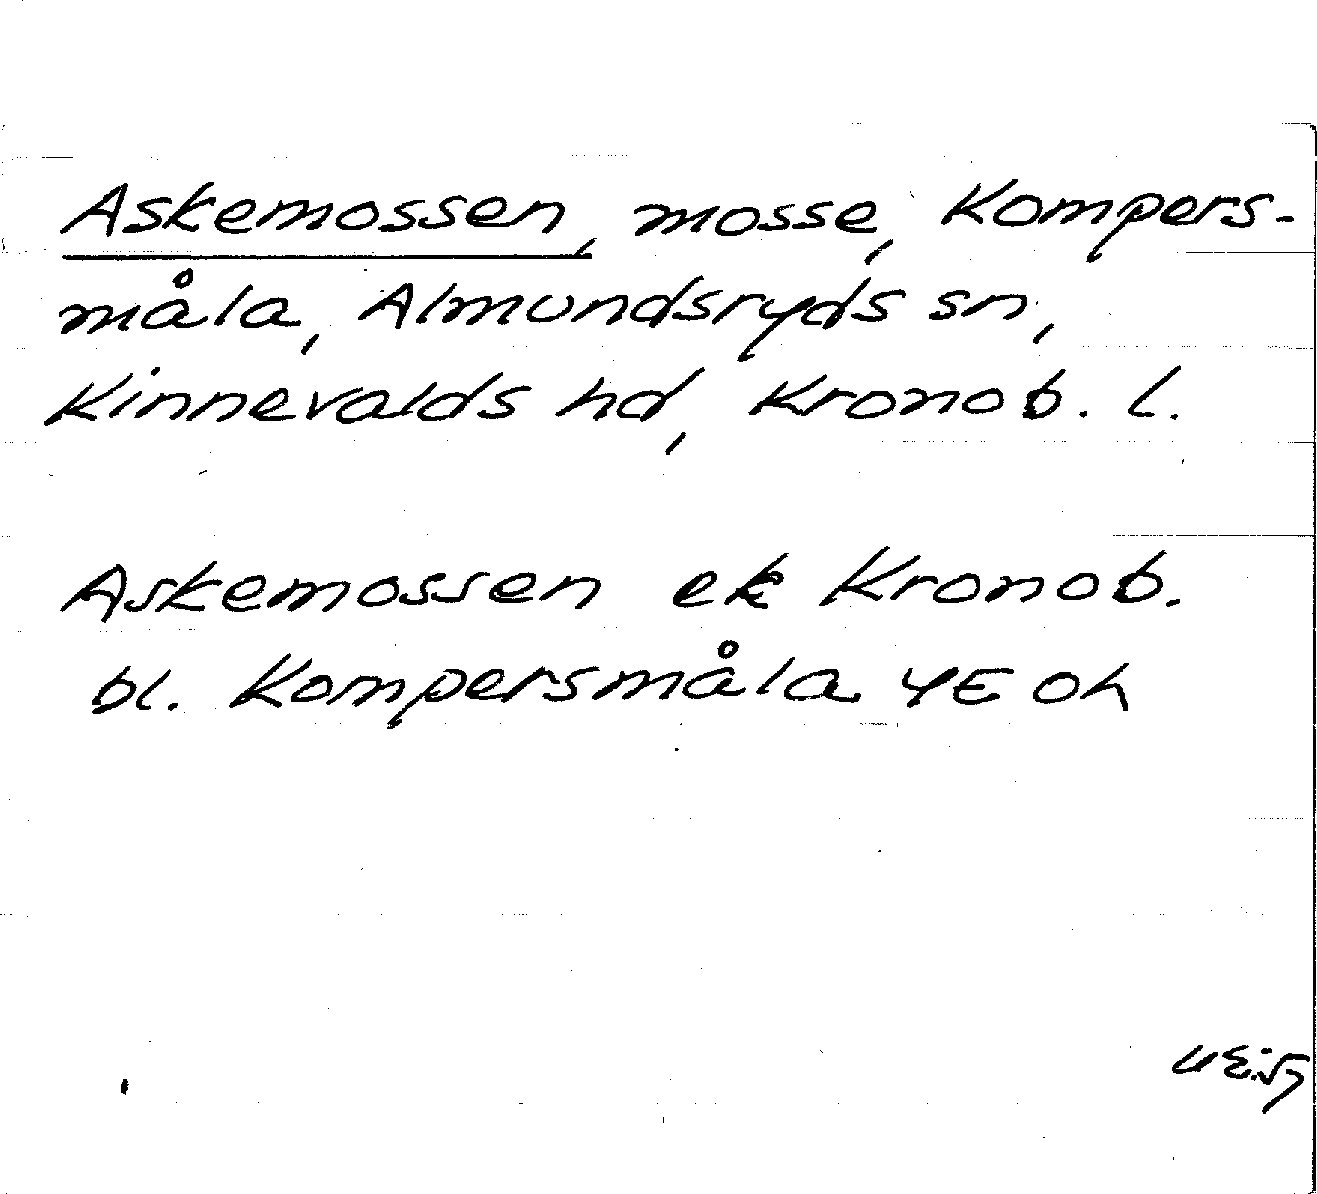 Askemossen, mosse, Kompers-
måla, Almundsryds sn,
Kinnevalds hd, Kronob. l.
Askemossen ek Kronob.
bl. Kompersmåla 4E Oh